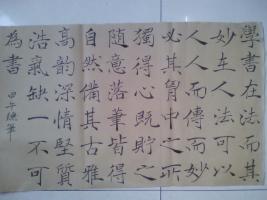 學書在法而其
妙在人法可以
人人而傳而妙
必其胷中之所
獨得心既貯之
隨意落筆皆得
自然備其古雅
高韵深情堅質
浩氣缺一不可
為書 甲午